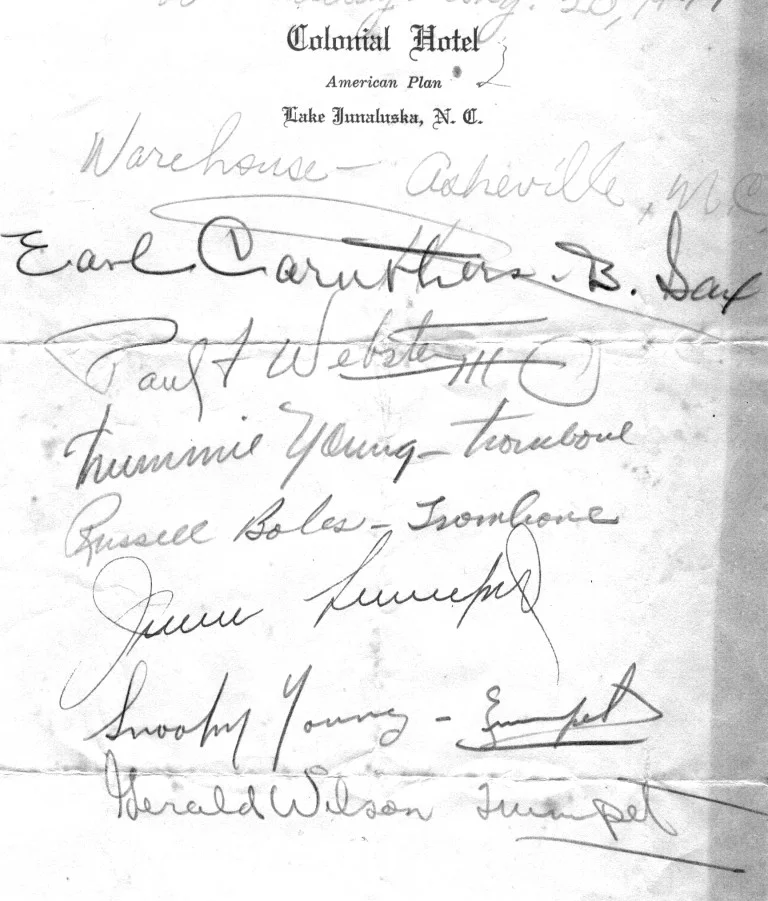 Aug. 20, 1941
Colonial Hotel
American Plan
Lake Junaluska, N. C.
Warehouse - Asheville, N.C.
Earl Caruthers - B. Sax
Paul F Webster III
Trummie Young - trombone
Russell Boles - Trombone
Jimmie Lunceford
Snooky Young - Trumpet
Gerald Wilson Trumpet